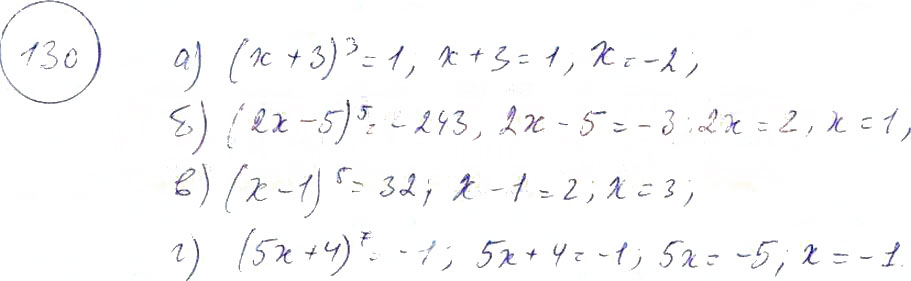 130
а) (x + 3)³ = 1, x + 3 = 1, x = -2;
б) (2x - 5)⁵ = -243, 2x - 5 = -3; 2x = 2, x = 1,
в) (x - 1)⁵ = 32; x - 1 = 2; x = 3;
г) (5x + 4)⁷ = -1; 5x + 4 = -1; 5x = -5; x = -1.